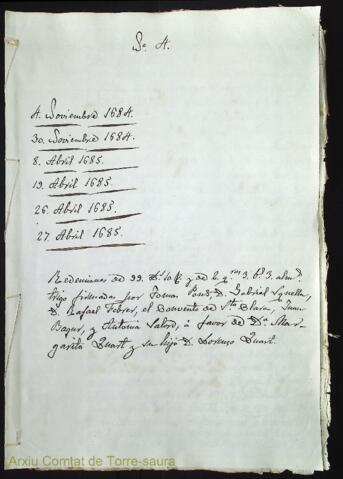 Nº A.
4. Noviembre 1684.
30. Noviembre 1684.
8. Abril 1685.
19. Abril 1685.
26. Abril 1685.
27. Abril 1685.
Redenciones de 99. y de 2. 3. 3.
trigo firmadas por Tomas Pons, D. Gabriel
D. Rafael Febrer, el Convento de Sta Clara, Juan
Bagur, y Antonia Salord, á favor de Dª Mar-
garita Quart y su hijo D. Lorenzo Quart.
Arxiu Comtat de Torre-saura